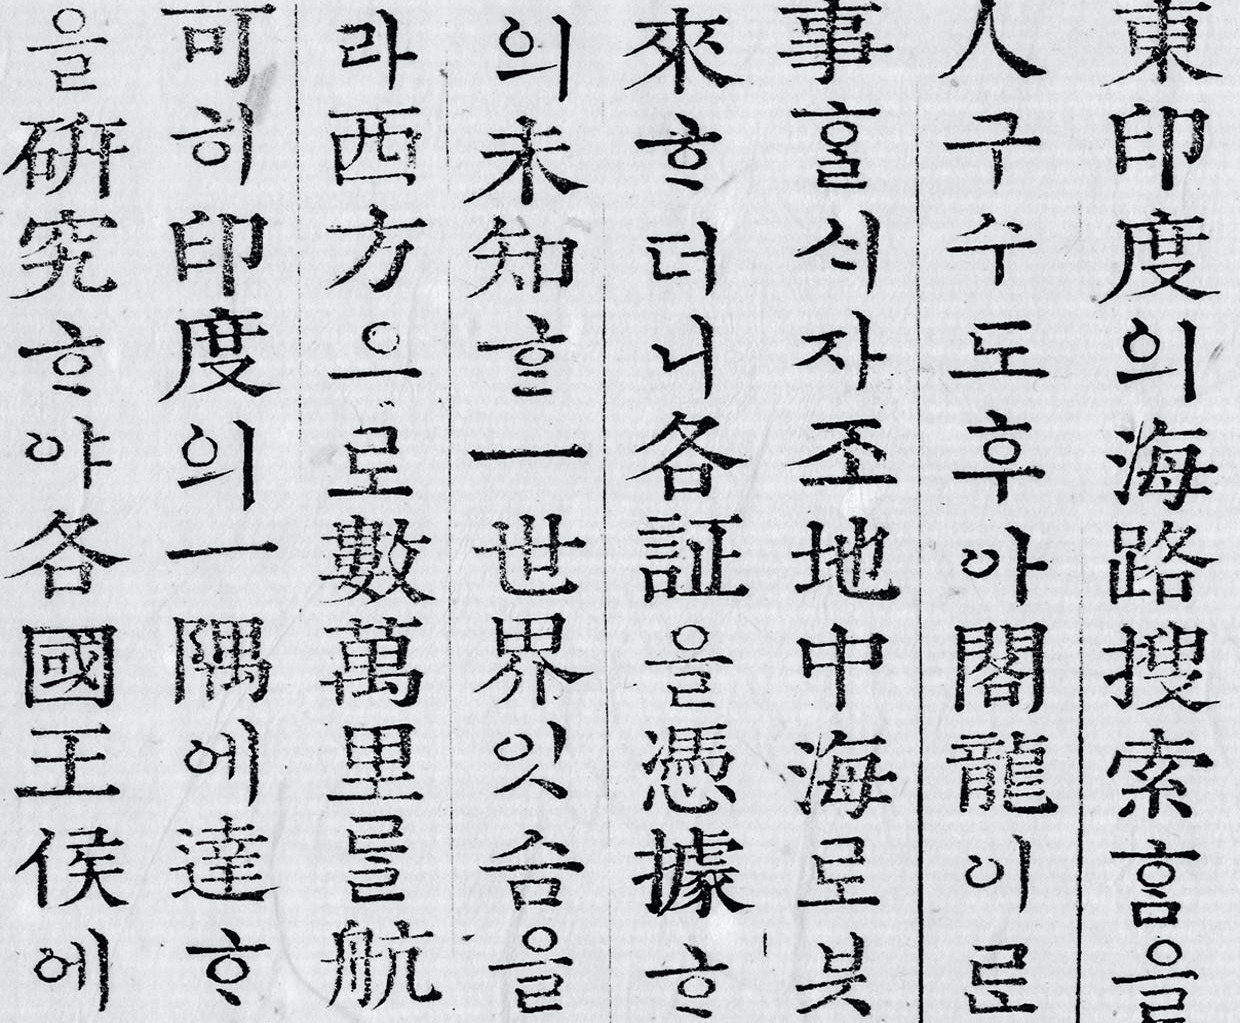 東印度의海路搜索홈을
人구수도후아閣龍이론
事홀싀자조地中海로븟
來ᄒᆞ더니各証을憑據ᄒᆞ
의未知ᄒᆞᆫ一世界잇슴을
라西方으로數萬里를航
可히印度의一隅에達ᄒᆞ
을硏究ᄒᆞ야各國王侯에